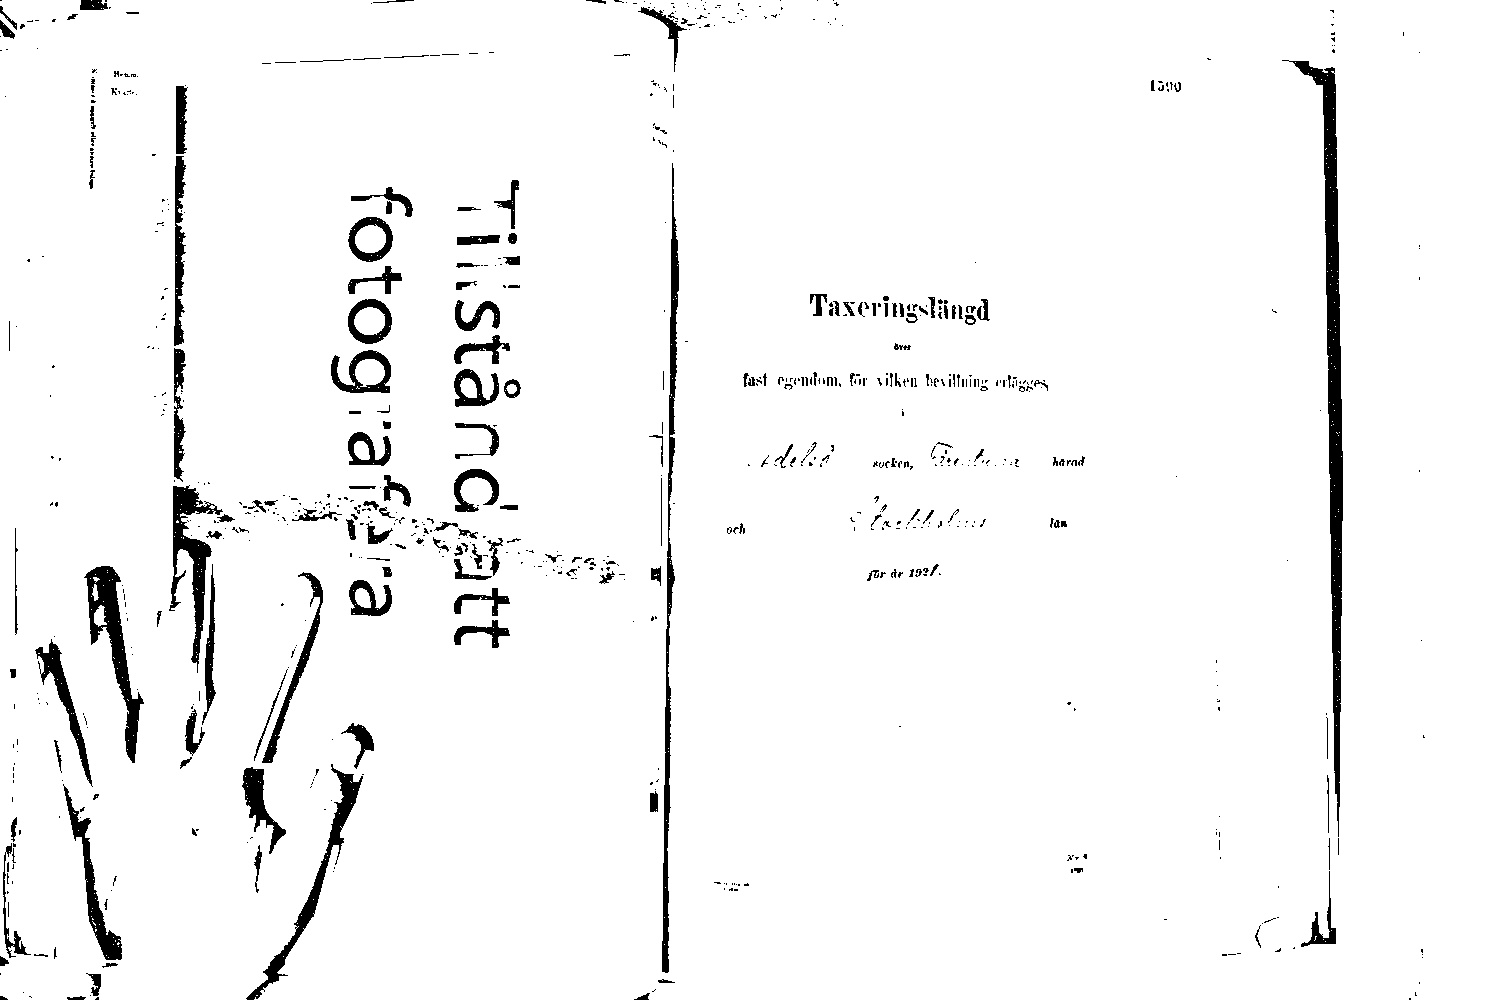 Tillstånd att
fotografera
Taxeringslängd
över
fast egendom, för vilken bevillning erlägges,
i
Adelsö socken, Färentuna härad
och Stockholms län
för år 1921.
Nr 4